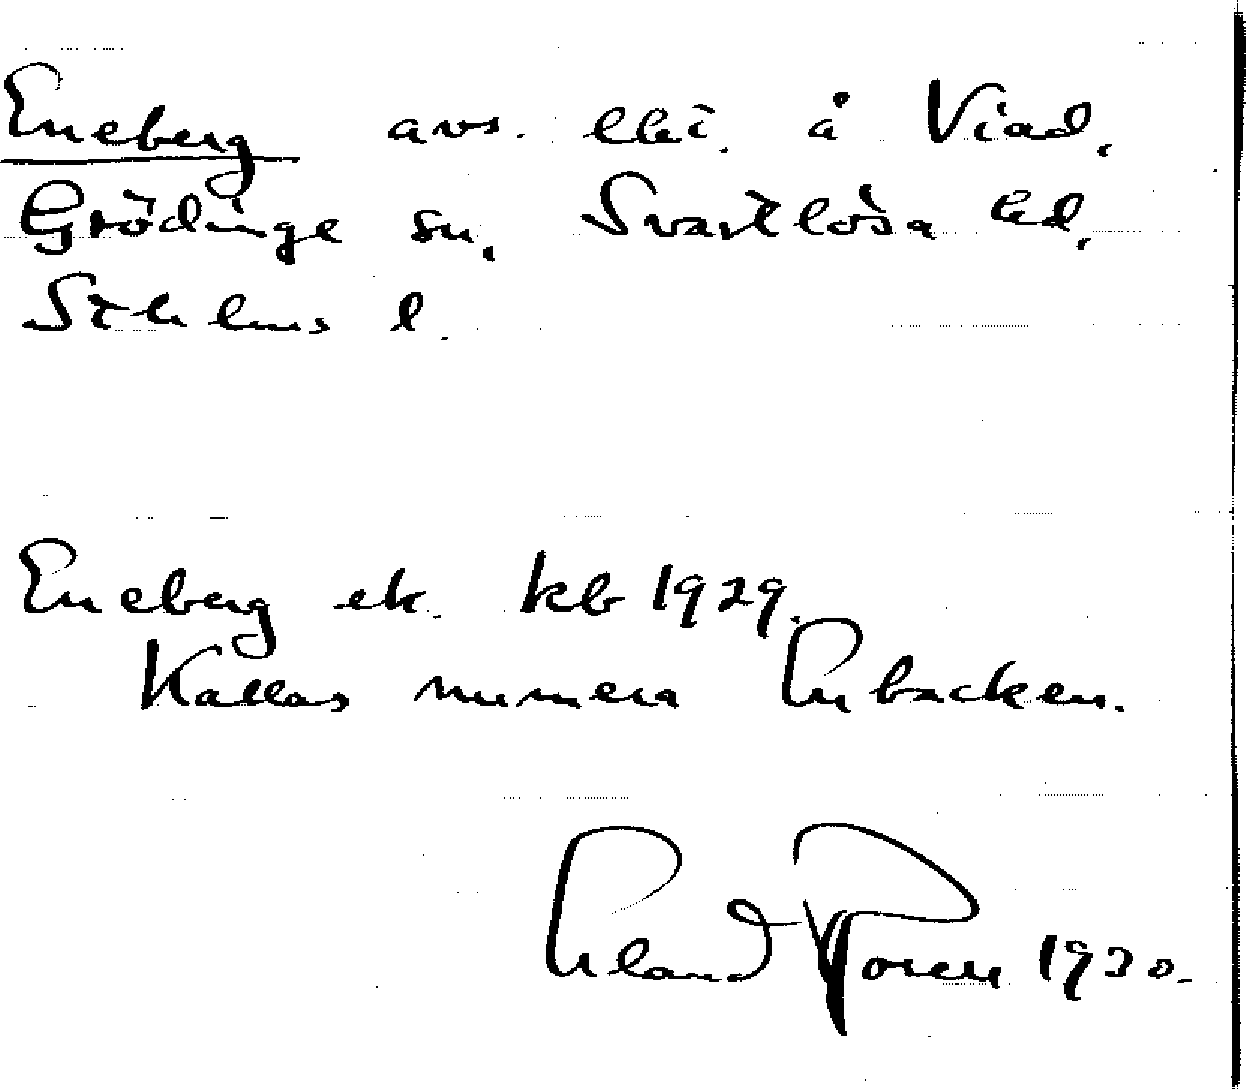 Eneberg avs. lht. å Viad,
Grödinge sn, Svartlösa hd,
Sthlms l.
Eneberg ek. kb 1929.
Kallas numera Enbacken.
1930.